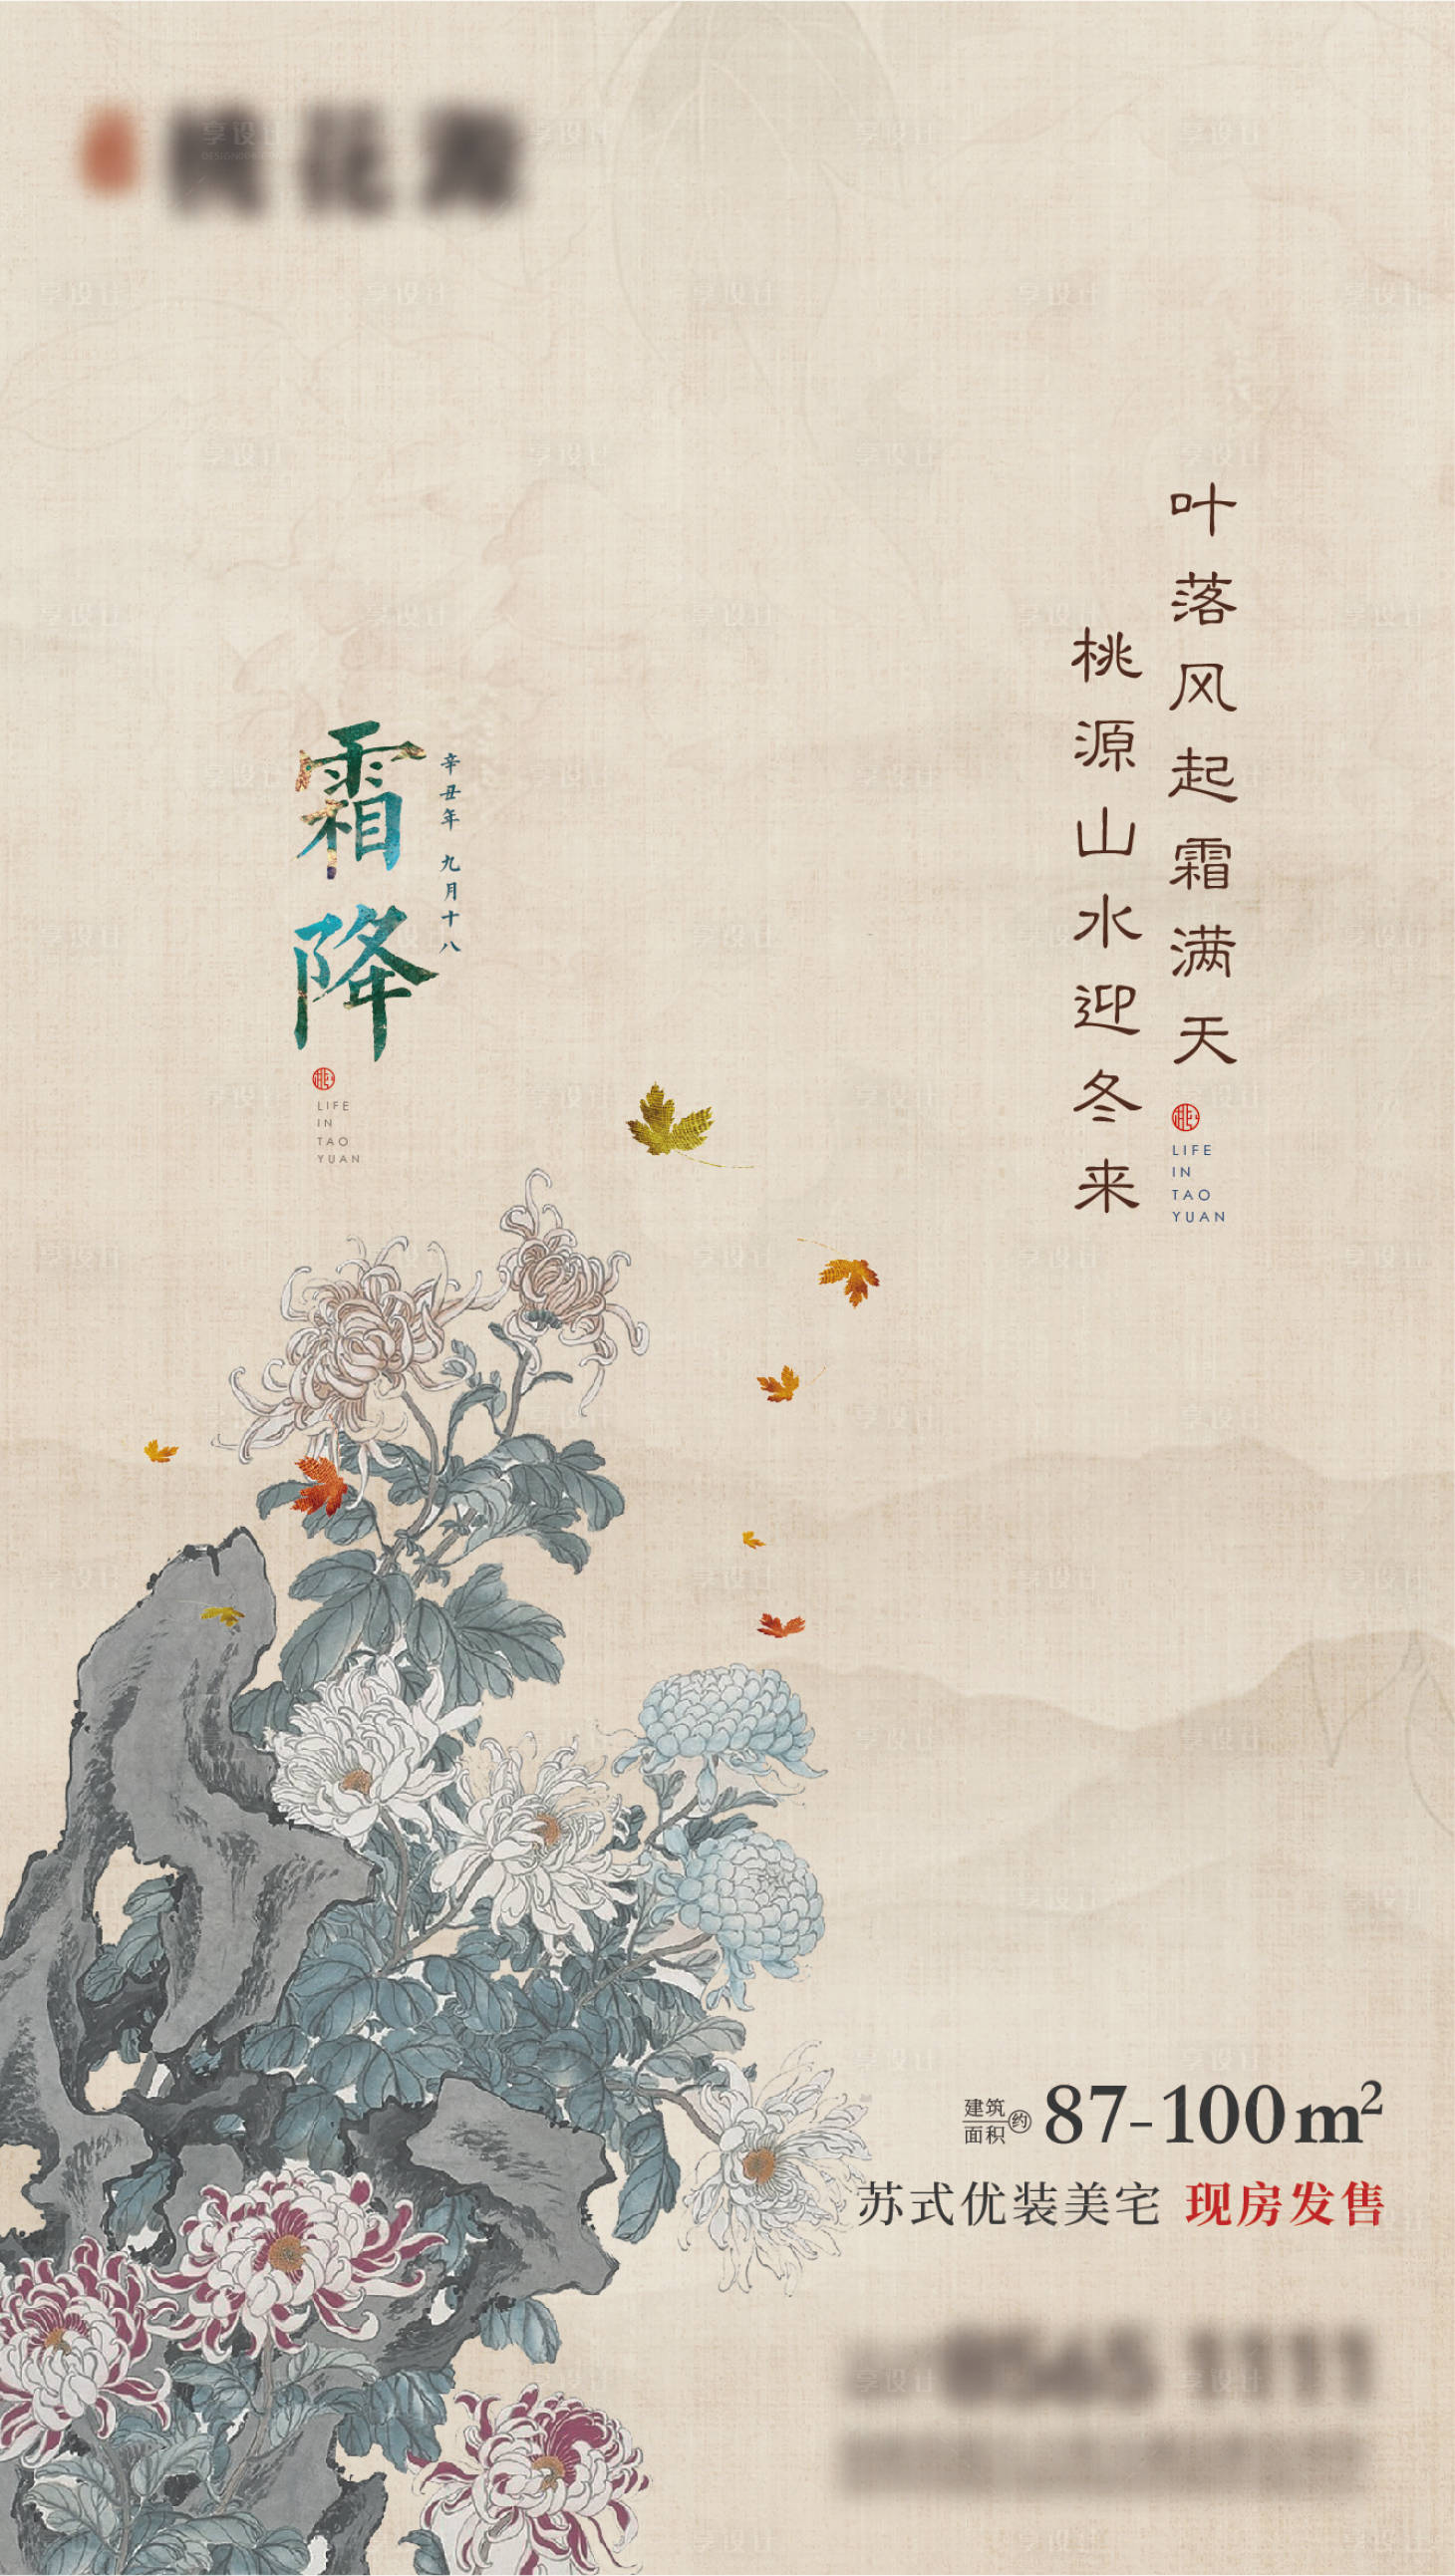 叶落风起霜满天
桃源山水迎冬来
LIFE
IN
TAO
YUAN
霜降
辛丑年 九月十八
LIFE
IN
TAO
YUAN
建筑面积约87-100m²
苏式优装美宅 现房发售
享设计